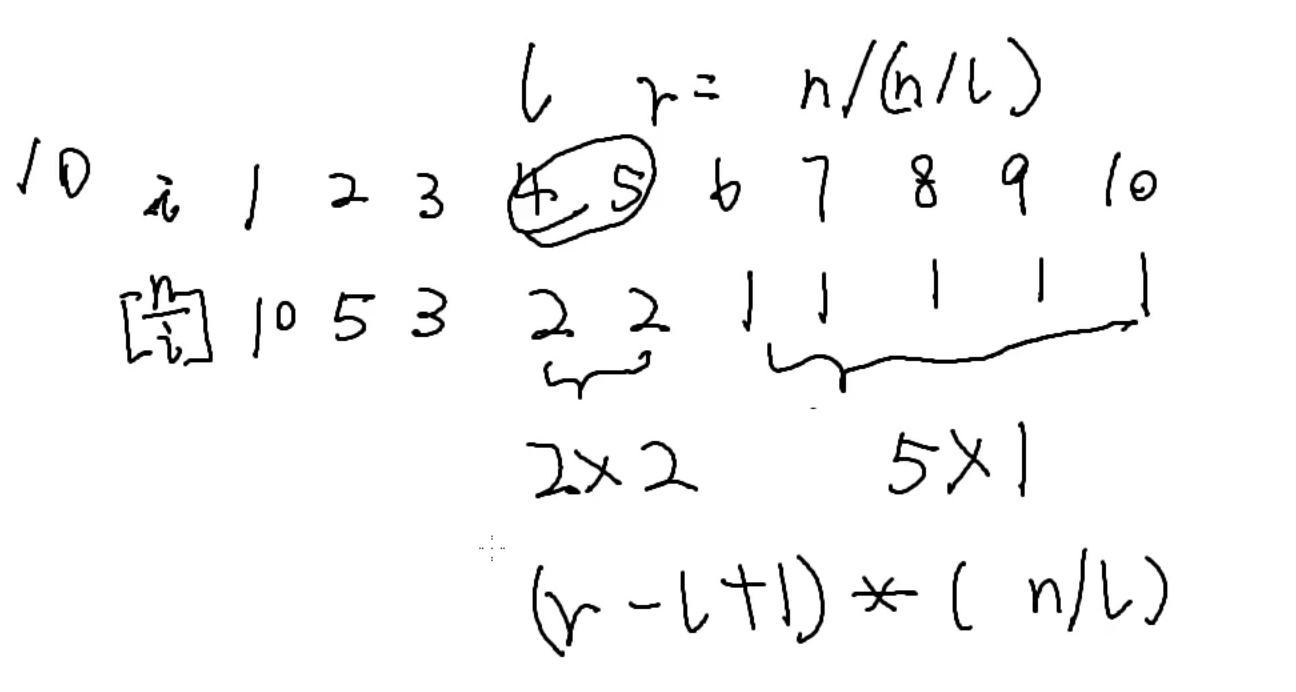 l r= n/(n/l)
10 i 1 2 3 4 5 6 7 8 9 10
[n/i] 10 5 3 2 2 1 1 1 1 1
2×2 5×1
(r-l+1)*( n/l)